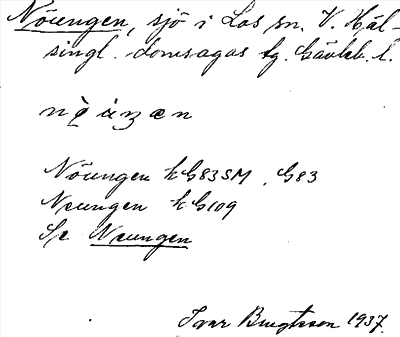 Nöungen, sjö i Los sn. V. Häl-
singl. domsagas tg. Gävleb. l.
Nöungen kG83SM, G83
Neungen kG109
Se Neungen
Ivar Bengtsson 1937.